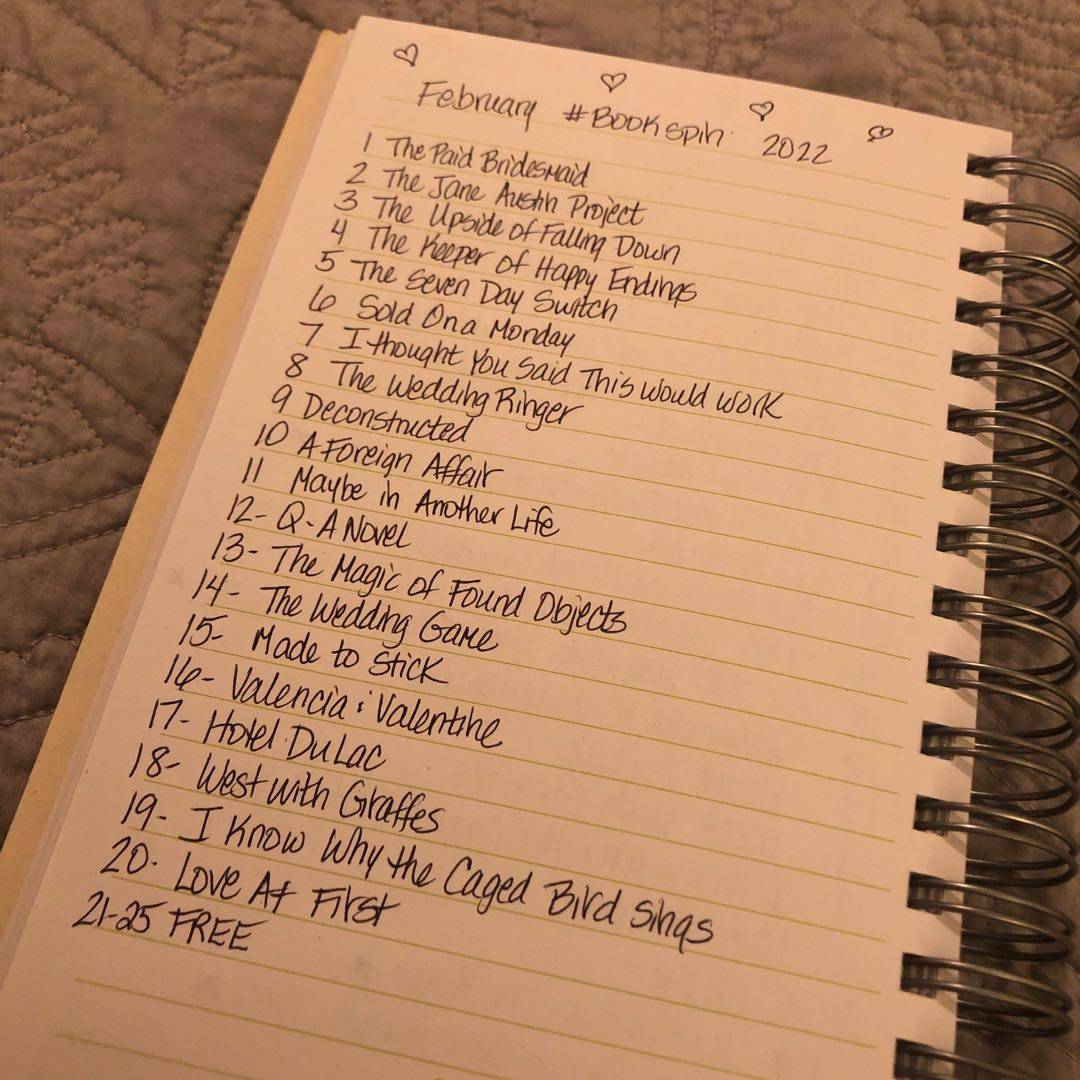 February #Bookspin 2022
1 The Paid Bridesmaid
2 The Jane Austin Project
3 The Upside of Falling Down
4 The Keeper of Happy Endings
5 The Seven Day Switch
6 Sold On a Monday
7 I thought You Said This would work
8 The Wedding Ringer
9 Deconstructed
10 A Foreign Affair
11 Maybe in Another Life
12- Q - A Novel
13- The Magic of Found Objects
14- The Wedding Game
15- Made to Stick
16- Valencia & Valentine
17- Hotel Du Lac
18- West with Giraffes
19- I Know Why the Caged Bird Sings
20- Love At First
21-25 FREE